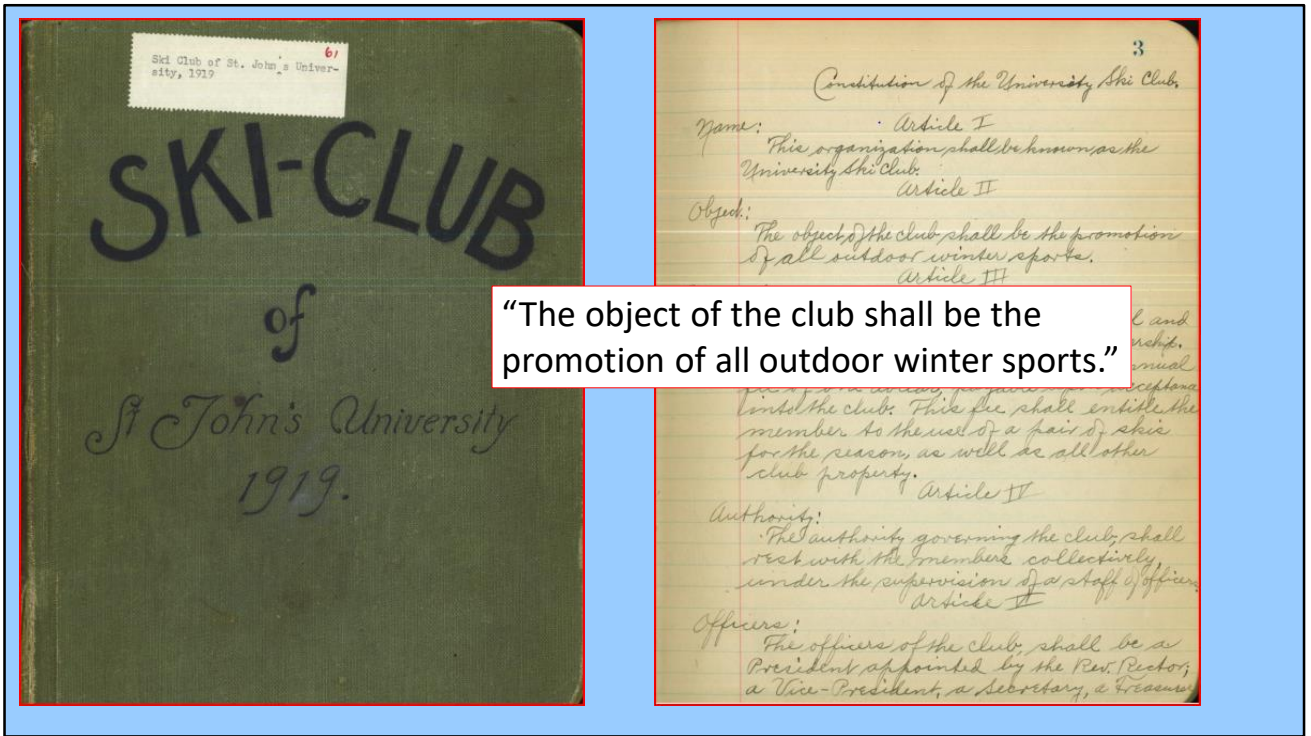 61
Ski Club of St. John's Univer-
sity, 1919
SKI-CLUB
of
St John's University
1919.
3
Constitution of the University Ski Club.
Name: Article I
This organization shall be known as the
University Ski Club.
Article II
Object:
The object of the club shall be the promotion
of all outdoor winter sports.
Article III
"The object of the club shall be the
promotion of all outdoor winter sports."
and
into the club. This fee shall entitle the
member to the use of a pair of skis
for the season, as well as all other
club property.
Article IV
Authority:
The authority governing the club, shall
rest with the members collectively,
under the supervision of a staff of officers
Article V
Officers:
The officers of the club, shall be a
President appointed by the Rev. Rector;
a Vice-President, a Secretary, a Treasurer